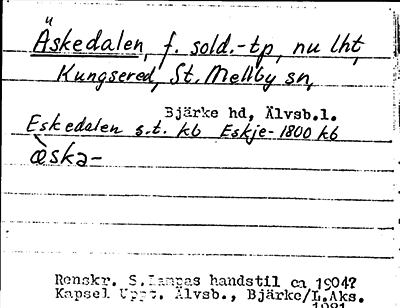 Äskedalen, f. sold.-tp, nu lht,
Kungsered, St. Mellby sn,
Bjärke hd, Älvsb.l.
Eskedalen s.t. kb Eskje- 1800 kb
æska-
Renskr. S. Lampas handstil ca 1904?
Kapsel Uppt. Älvsb., Bjärke/L.Aks.
1981